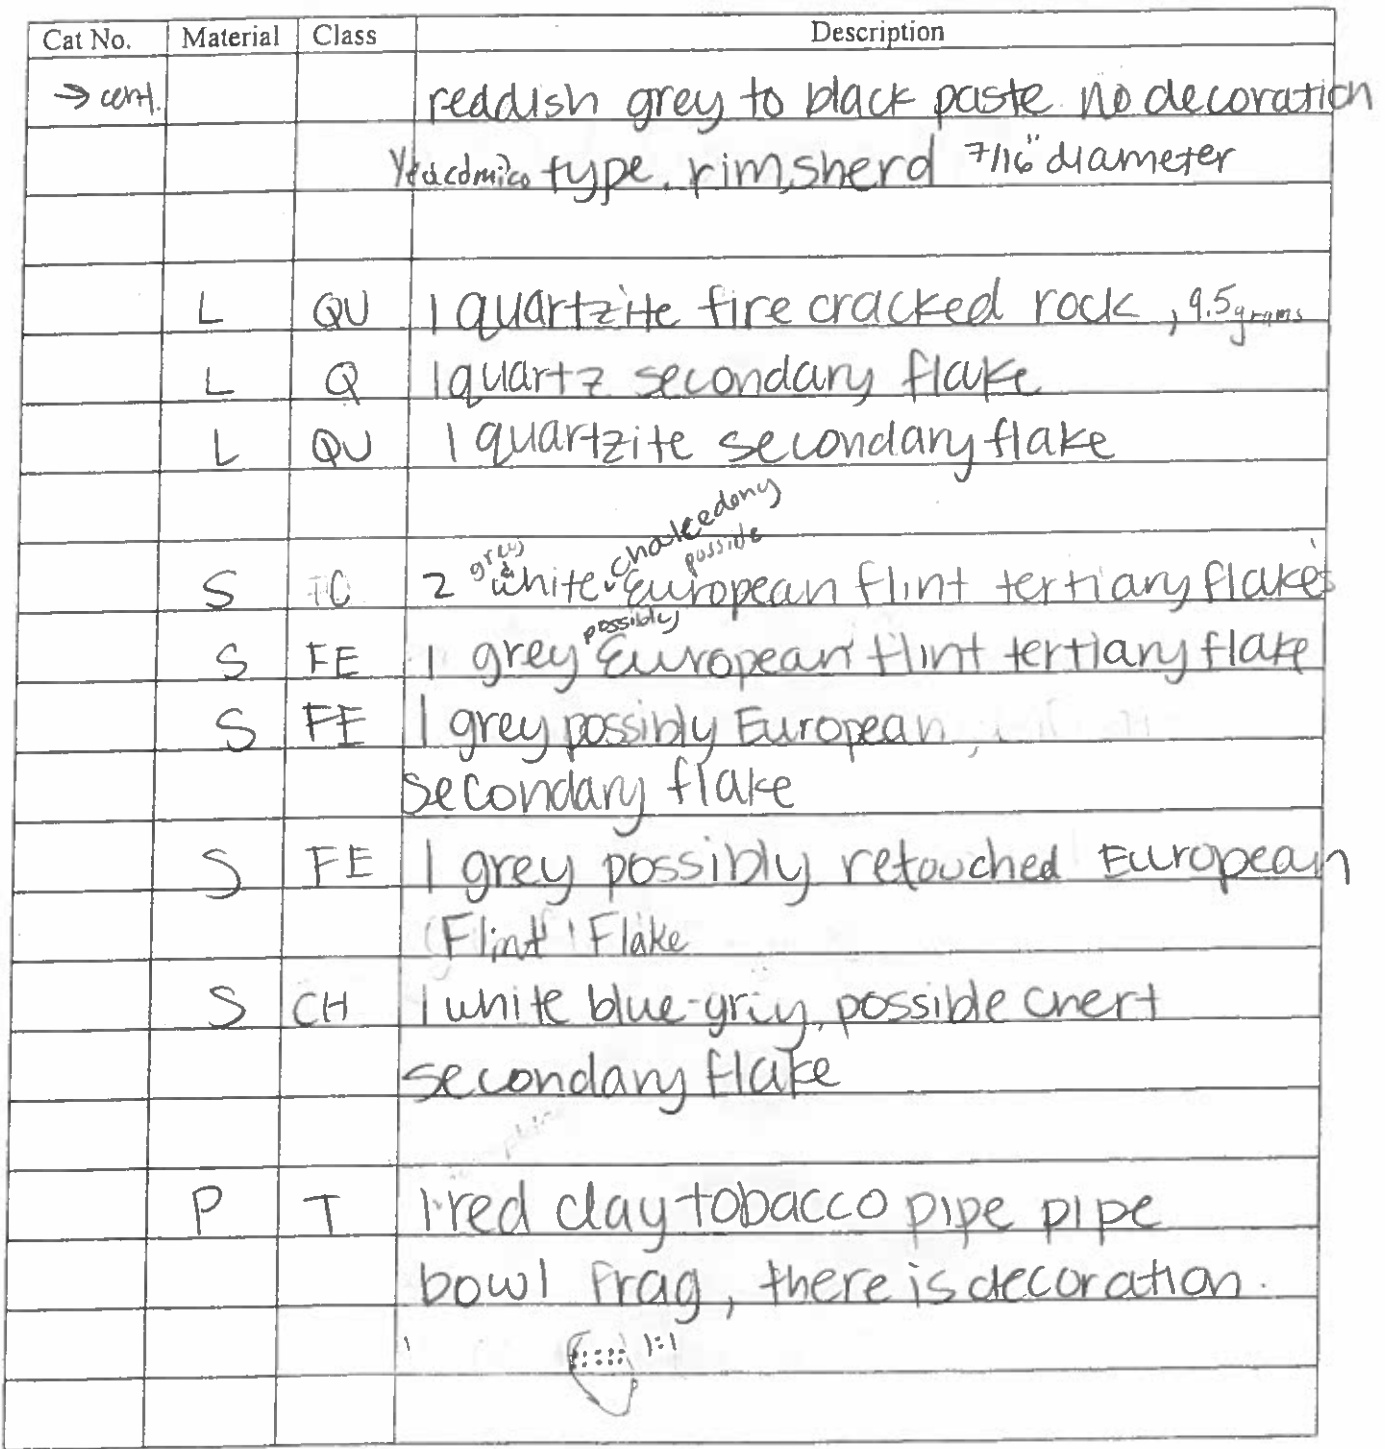 Cat No. Material Class Description
→ cont. reddish grey to black paste no decoration
Yeacomico type, rimsherd 7/16" diameter
L QU 1 quartzite fire cracked rock, 9.5 grams
L Q 1 quartz secondary flake
L QU 1 quartzite secondary flake
chalcedony
grey possible
S 2 & white European flint tertiary flakes
possibly
S FE 1 grey European flint tertiary flake
S FE 1 grey possibly European,
secondary flake
S FE 1 grey possibly retouched European
Flint Flake
S CH 1 white blue-grey, possible chert
secondary flake
P T 1 red clay tobacco pipe pipe
bowl frag, there is decoration.
1:1